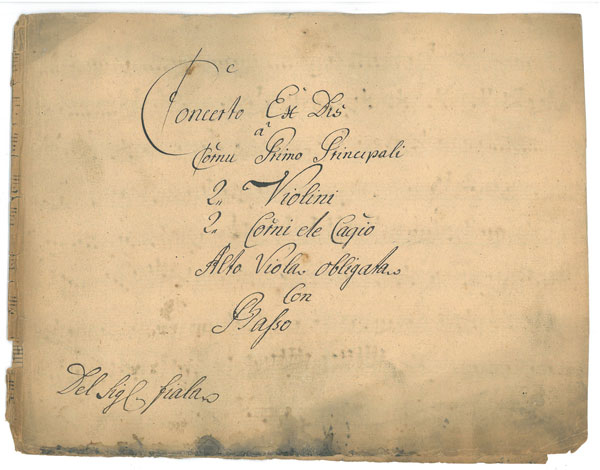 Concerto Ex Dis
a
Cornu Primo Principali
2„ Violini
2„ Corni de Cacio
Alto Viola obligata
Con
Basso
Del Sig fiala